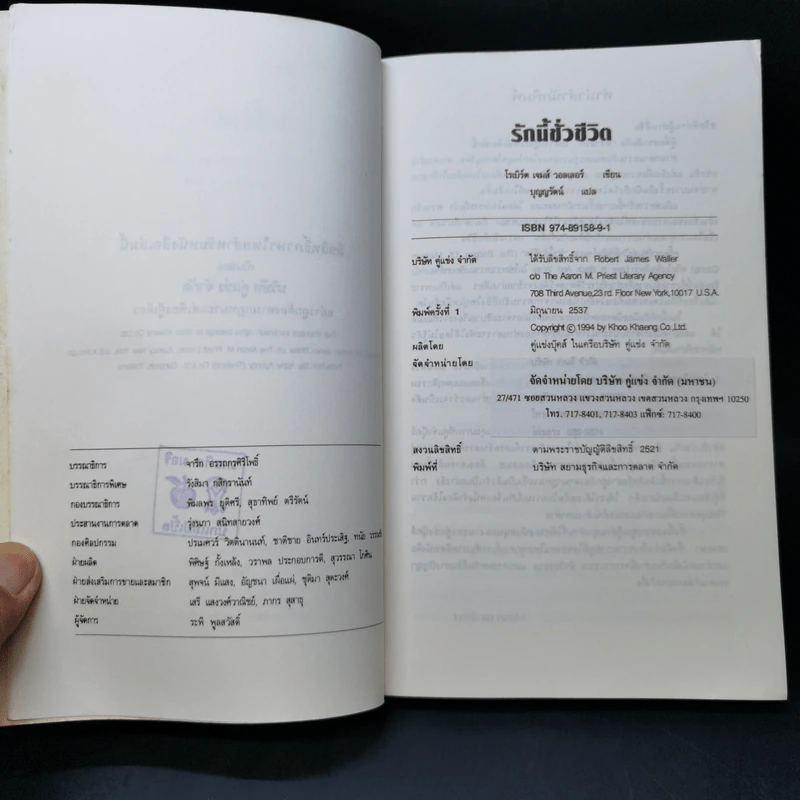 บรรณาธิการ จารึก อรรถกรศิริโพธิ์
บรรณาธิการพิเศษ รังสิมา กสิกรานันท์
กองบรรณาธิการ พิมลพร ยุติศรี, สุธาทิพย์ ตรีรัตน์
ประสานงานการตลาด รุ่งนภา สนิทสายวงศ์
กองศิลปกรรม ปรเมศวร์ วิตตินานนท์, ชาติชาย อินทร์ประเสริฐ, ทนัย
ฝ่ายผลิต พิศิษฐ์ กั้งเหลิง, วราพล ประกอบการดี, สุวรรณา
ฝ่ายส่งเสริมการขายและสมาชิก สุพจน์ มีแสง, อัญชนา เผื่อแผ่, ชุติมา สุตะวงศ์
ฝ่ายจัดจำหน่าย เสรี แสงวงศ์วาณิชย์, ภากร สุสาธุ
ผู้จัดการ ระพี พูลสวัสดิ์
รักนี้ชั่วชีวิต
โรเบิร์ต เจมส์ วอลเลอร์ เขียน
บุญญรัตน์ แปล
ISBN 974-89158-9-1
บริษัท คู่แข่ง จำกัด ได้รับลิขสิทธิ์จาก Robert James Waller
c/o The Aaron M. Priest Literary Agency
708 Third Avenue,23 rd. Floor New York,10017 U.S.A.
พิมพ์ครั้งที่ 1 มิถุนายน 2537
Copyright © 1994 by Khoo Khaeng Co.,Ltd.
ผลิตโดย คู่แข่งบุ๊คส์ ในเครือบริษัท คู่แข่ง จำกัด
จัดจำหน่ายโดย
จัดจำหน่ายโดย บริษัท คู่แข่ง จำกัด (มหาชน)
27/471 ซอยสวนหลวง แขวงสวนหลวง เขตสวนหลวง กรุงเทพฯ 10250
โทร. 717-8401, 717-8403 แฟ็กซ์: 717-8400
สงวนลิขสิทธิ์ ตามพระราชบัญญัติลิขสิทธิ์ 2521
พิมพ์ที่ บริษัท สยามธุรกิจและการตลาด จำกัด